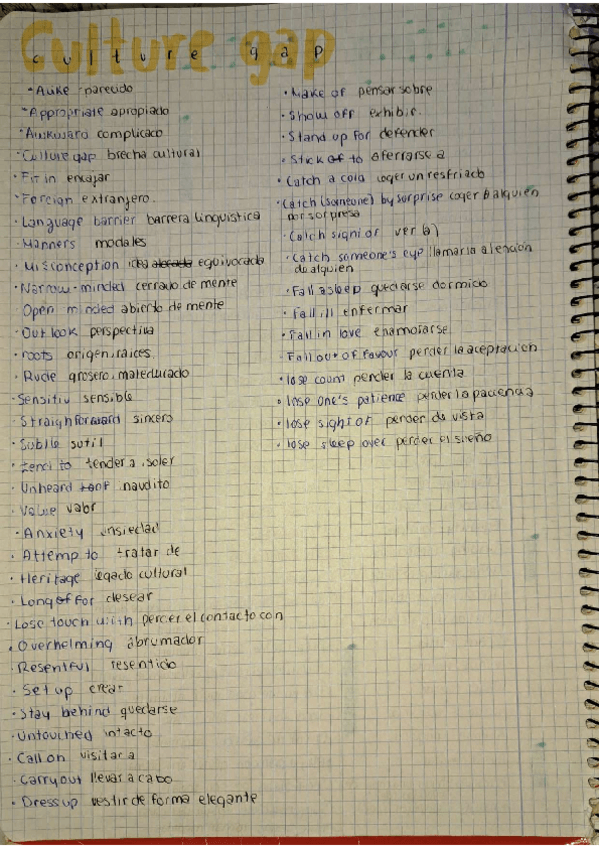 Culture gap
culture gap
· Alike parecido
· Appropriate apropiado
· Awkward complicado
· Culture gap brecha cultural
· Fit in encajar
· Foreign extranjero.
· Language barrier barrera linguistica
· Manners modales
· Misconception idea equivocada
· Narrow-minded cerrado de mente
Open minded abierto de mente
· Outlook perspectiva
· roots origen, raices.
· Rude grosero, maleducado
· Sensitiv sensible
· Straighforward sincero
· Subtle sutil
· tend to tender a, soler
· Unheard of inaudito
· Value valor
· Anxiety ansiedad
· Attemp to tratar de
· Heritage legado cultural
· Long for desear
· Lose touch with perder el contacto con
· Overhelming abrumador
· Resentful resentido
· Set up crear
· Stay behind quedarse
· Untouched intacto
· Call on visitar a
· Carry out llevar a cabo
· Dress up vestir de forma elegante
· Make of pensar sobre
· Show off exhibir.
· Stand up for defender
· Stick to aferrarse a
· Catch a cold coger un resfriado
· Catch (someone) by sorprise coger a alguien
por sorpresa
· Catch sight of ver (a)
· Catch someone's eye llamar la atencion
de alguien
· Fall asleep quedarse dormido
· Fall ill enfermar
· Fall in love enamorarse
· Fall out of favour perder la aceptación
· lose count perder la cuenta
· lose one's patience perder la paciencia
· lose sight of perder de vista
· lose sleep over perder el sueño